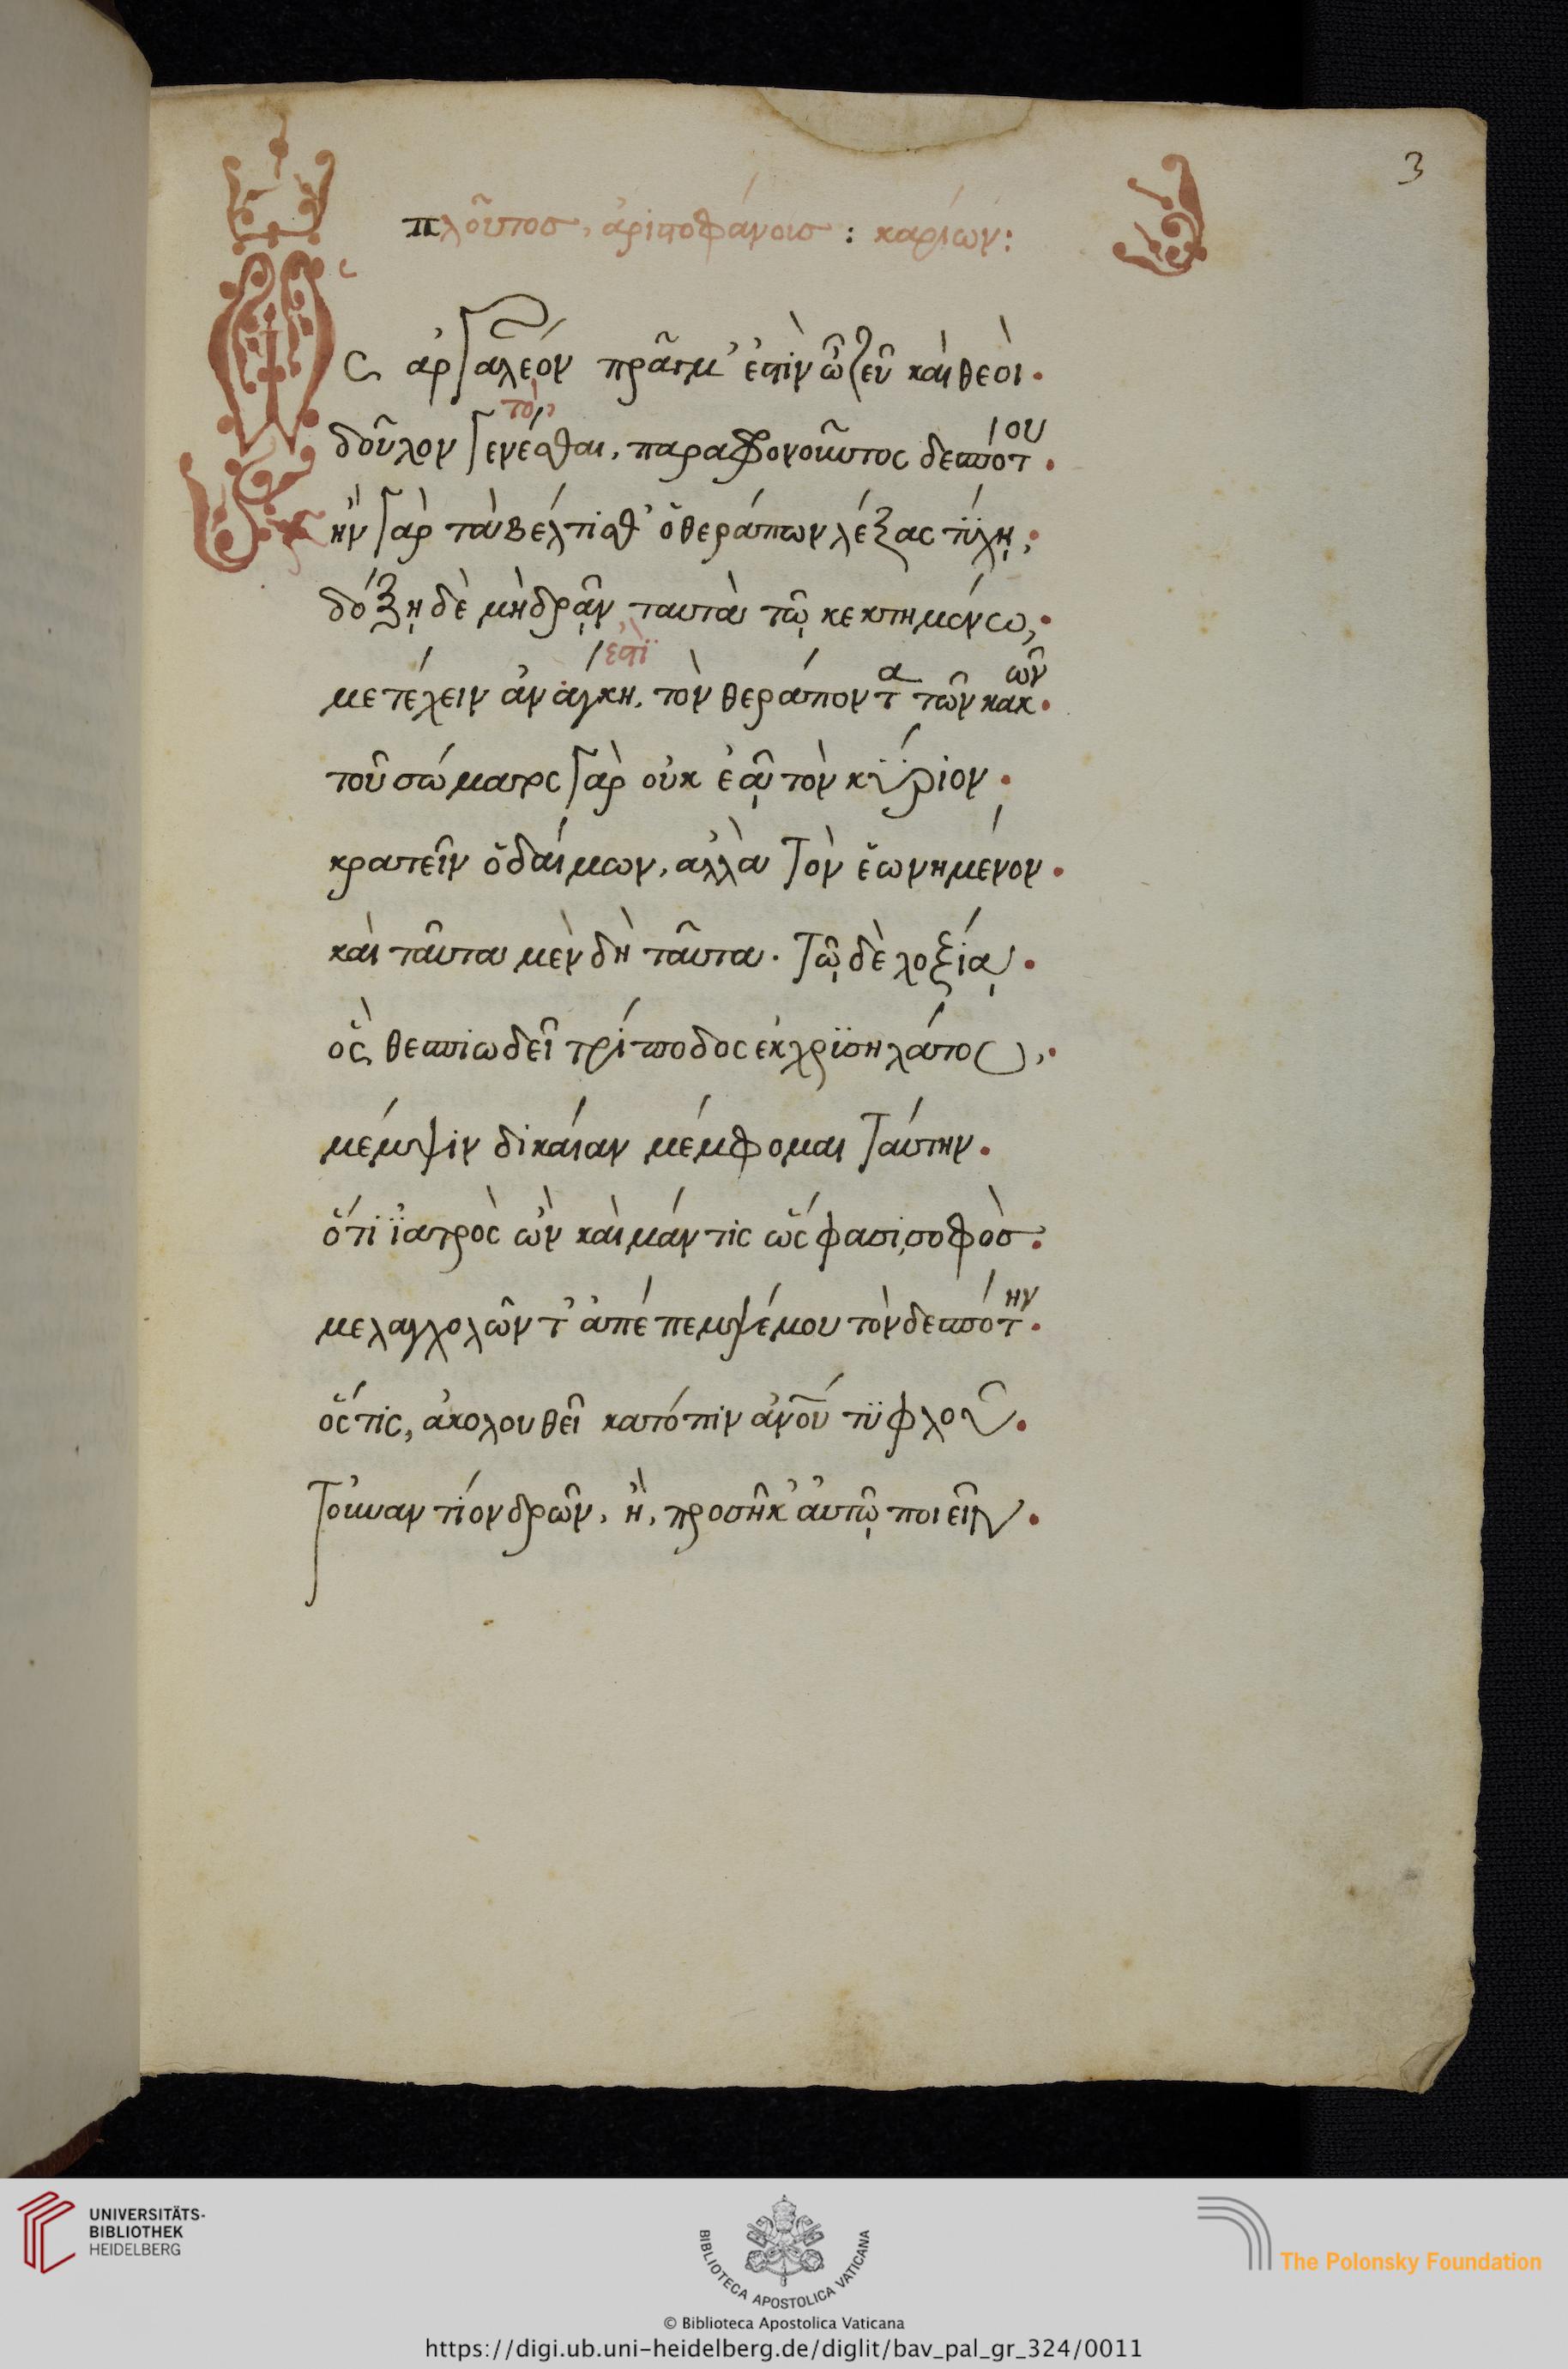 3
πλοῦτος, ἀριστοφάνους : καρίων:
Ὡς ἀργαλέον πρᾶγμ' ἐστὶν ὦ ζεῦ καὶ θεοί.
τὸ
δοῦλον γενέσθαι, παραφρονοῦντος δεσπότου.
ἢν γὰρ τὰ βέλτισθ' ὁ θεράπων λέξας τύχῃ,
δόξῃ δὲ μὴ δρᾷν ταυτὰ τῷ κεκτημένῳ,
ἐστὶ
μετέχειν ἀνάγκη, τὸν θεράποντα τῶν κακῶν.
τοῦ σώματος γὰρ οὐκ ἐᾷ τὸν κύριον.
κρατεῖν ὁ δαίμων, ἀλλὰ τὸν ἐωνημένον.
καὶ ταῦτα μὲν δὴ ταῦτα. τῷ δὲ λοξίᾳ.
ὃς θεσπιωδεῖ τρίποδος ἐκ χρϋσηλάτου,
μέμψιν δικαίαν μέμφομαι ταύτην.
ὅτι ϊατρὸς ὢν καὶ μάντις ὥς φασι, σοφὸς.
μελαγχολῶντ' ἀπέπεμψέ μου τὸν δεσπότην.
ὅςτις, ἀκολουθεῖ κατόπιν ἀνου τϋφλοῦ.
τοὐναντίον δρῶν, ἢ, προσῆκ' ἀυτῷ ποιεῖν.
UNIVERSITÄTS-
BIBLIOTHEK
HEIDELBERG
BIBLIOTECA APOSTOLICA VATICANA
The Polonsky Foundation
© Biblioteca Apostolica Vaticana
https://digi.ub.uni-heidelberg.de/diglit/bav_pal_gr_324/0011